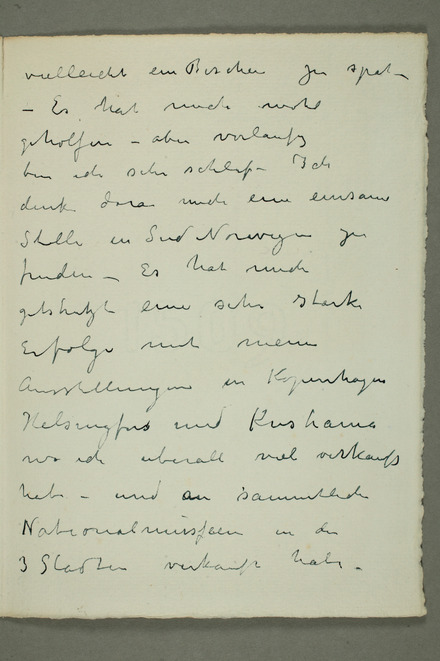 vielleicht ein Bischen zu spät –
– Es hat mich wohl
geholfen – aber vorläufig
bin ich sehr schlap – Ich
denke daran mich eine einsame
Stelle in Süd Norwegen zu
finden – Es hat mich
gestützt eine sehr starke
Erfolge mit meine
Ausstellungen in Kopenhagen
Helsingfors und Kristiania
wo ich überall viel verkauft
habe – und an sammtliche
Nationalmusseen in die
3 Städten verkauft habe –